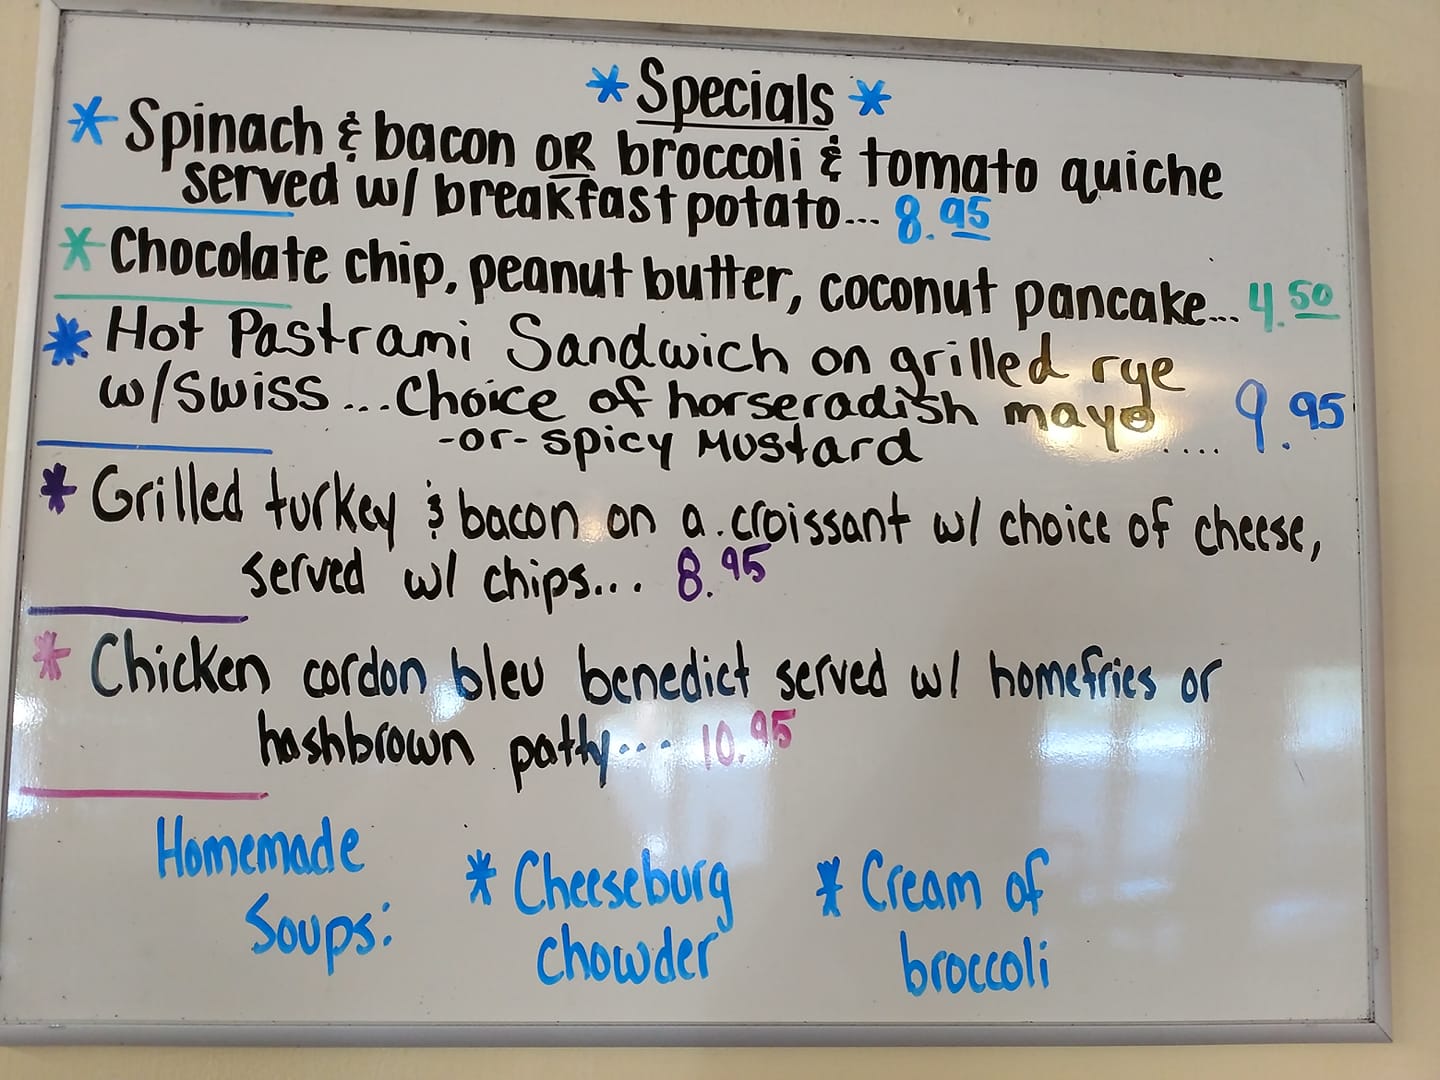 * Specials *
* Spinach & bacon OR broccoli & tomato quiche
served w/ breakfast potato... 8.95
* Chocolate chip, peanut butter, coconut pancake... 4.50
* Hot Pastrami Sandwich on grilled rye
w/swiss...choice of horseradish mayo
-or- spicy mustard .... 9.95
* Grilled turkey & bacon on a croissant w/ choice of cheese,
served w/ chips... 8.95
* Chicken cordon bleu benedict served w/ homefries or
hashbrown patty... 10.95
Homemade
Soups:
* Cheeseburg
chowder
* Cream of
broccoli